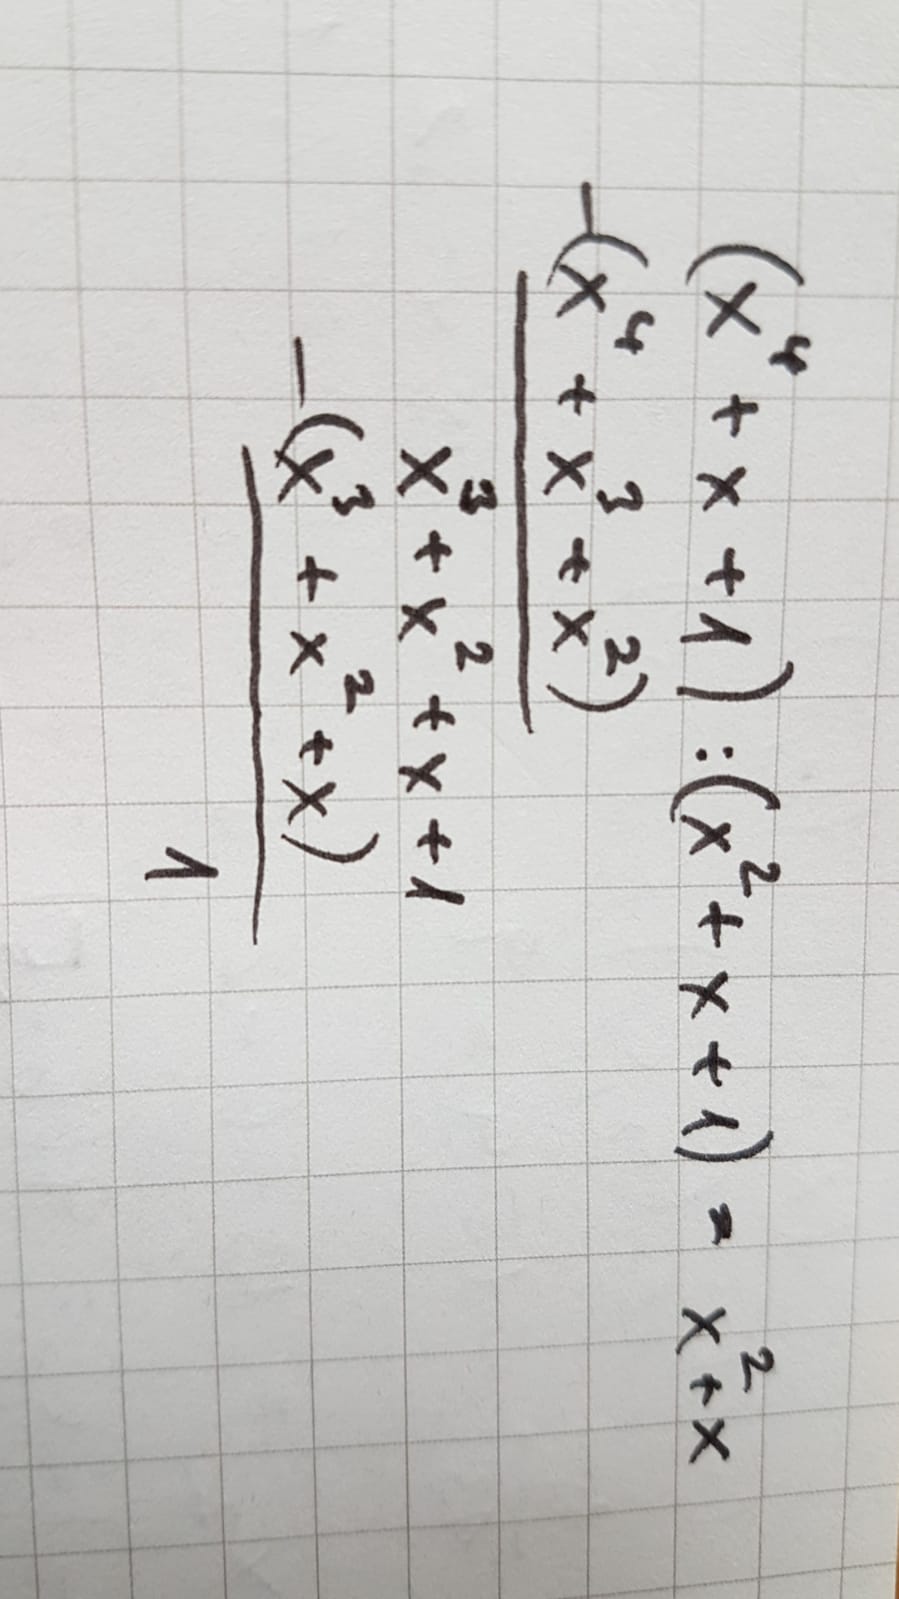 (x⁴ + x + 1) : (x² + x + 1) = x² + x
-(x⁴ + x³ + x²)
x³ + x² + x + 1
-(x³ + x² + x)
1